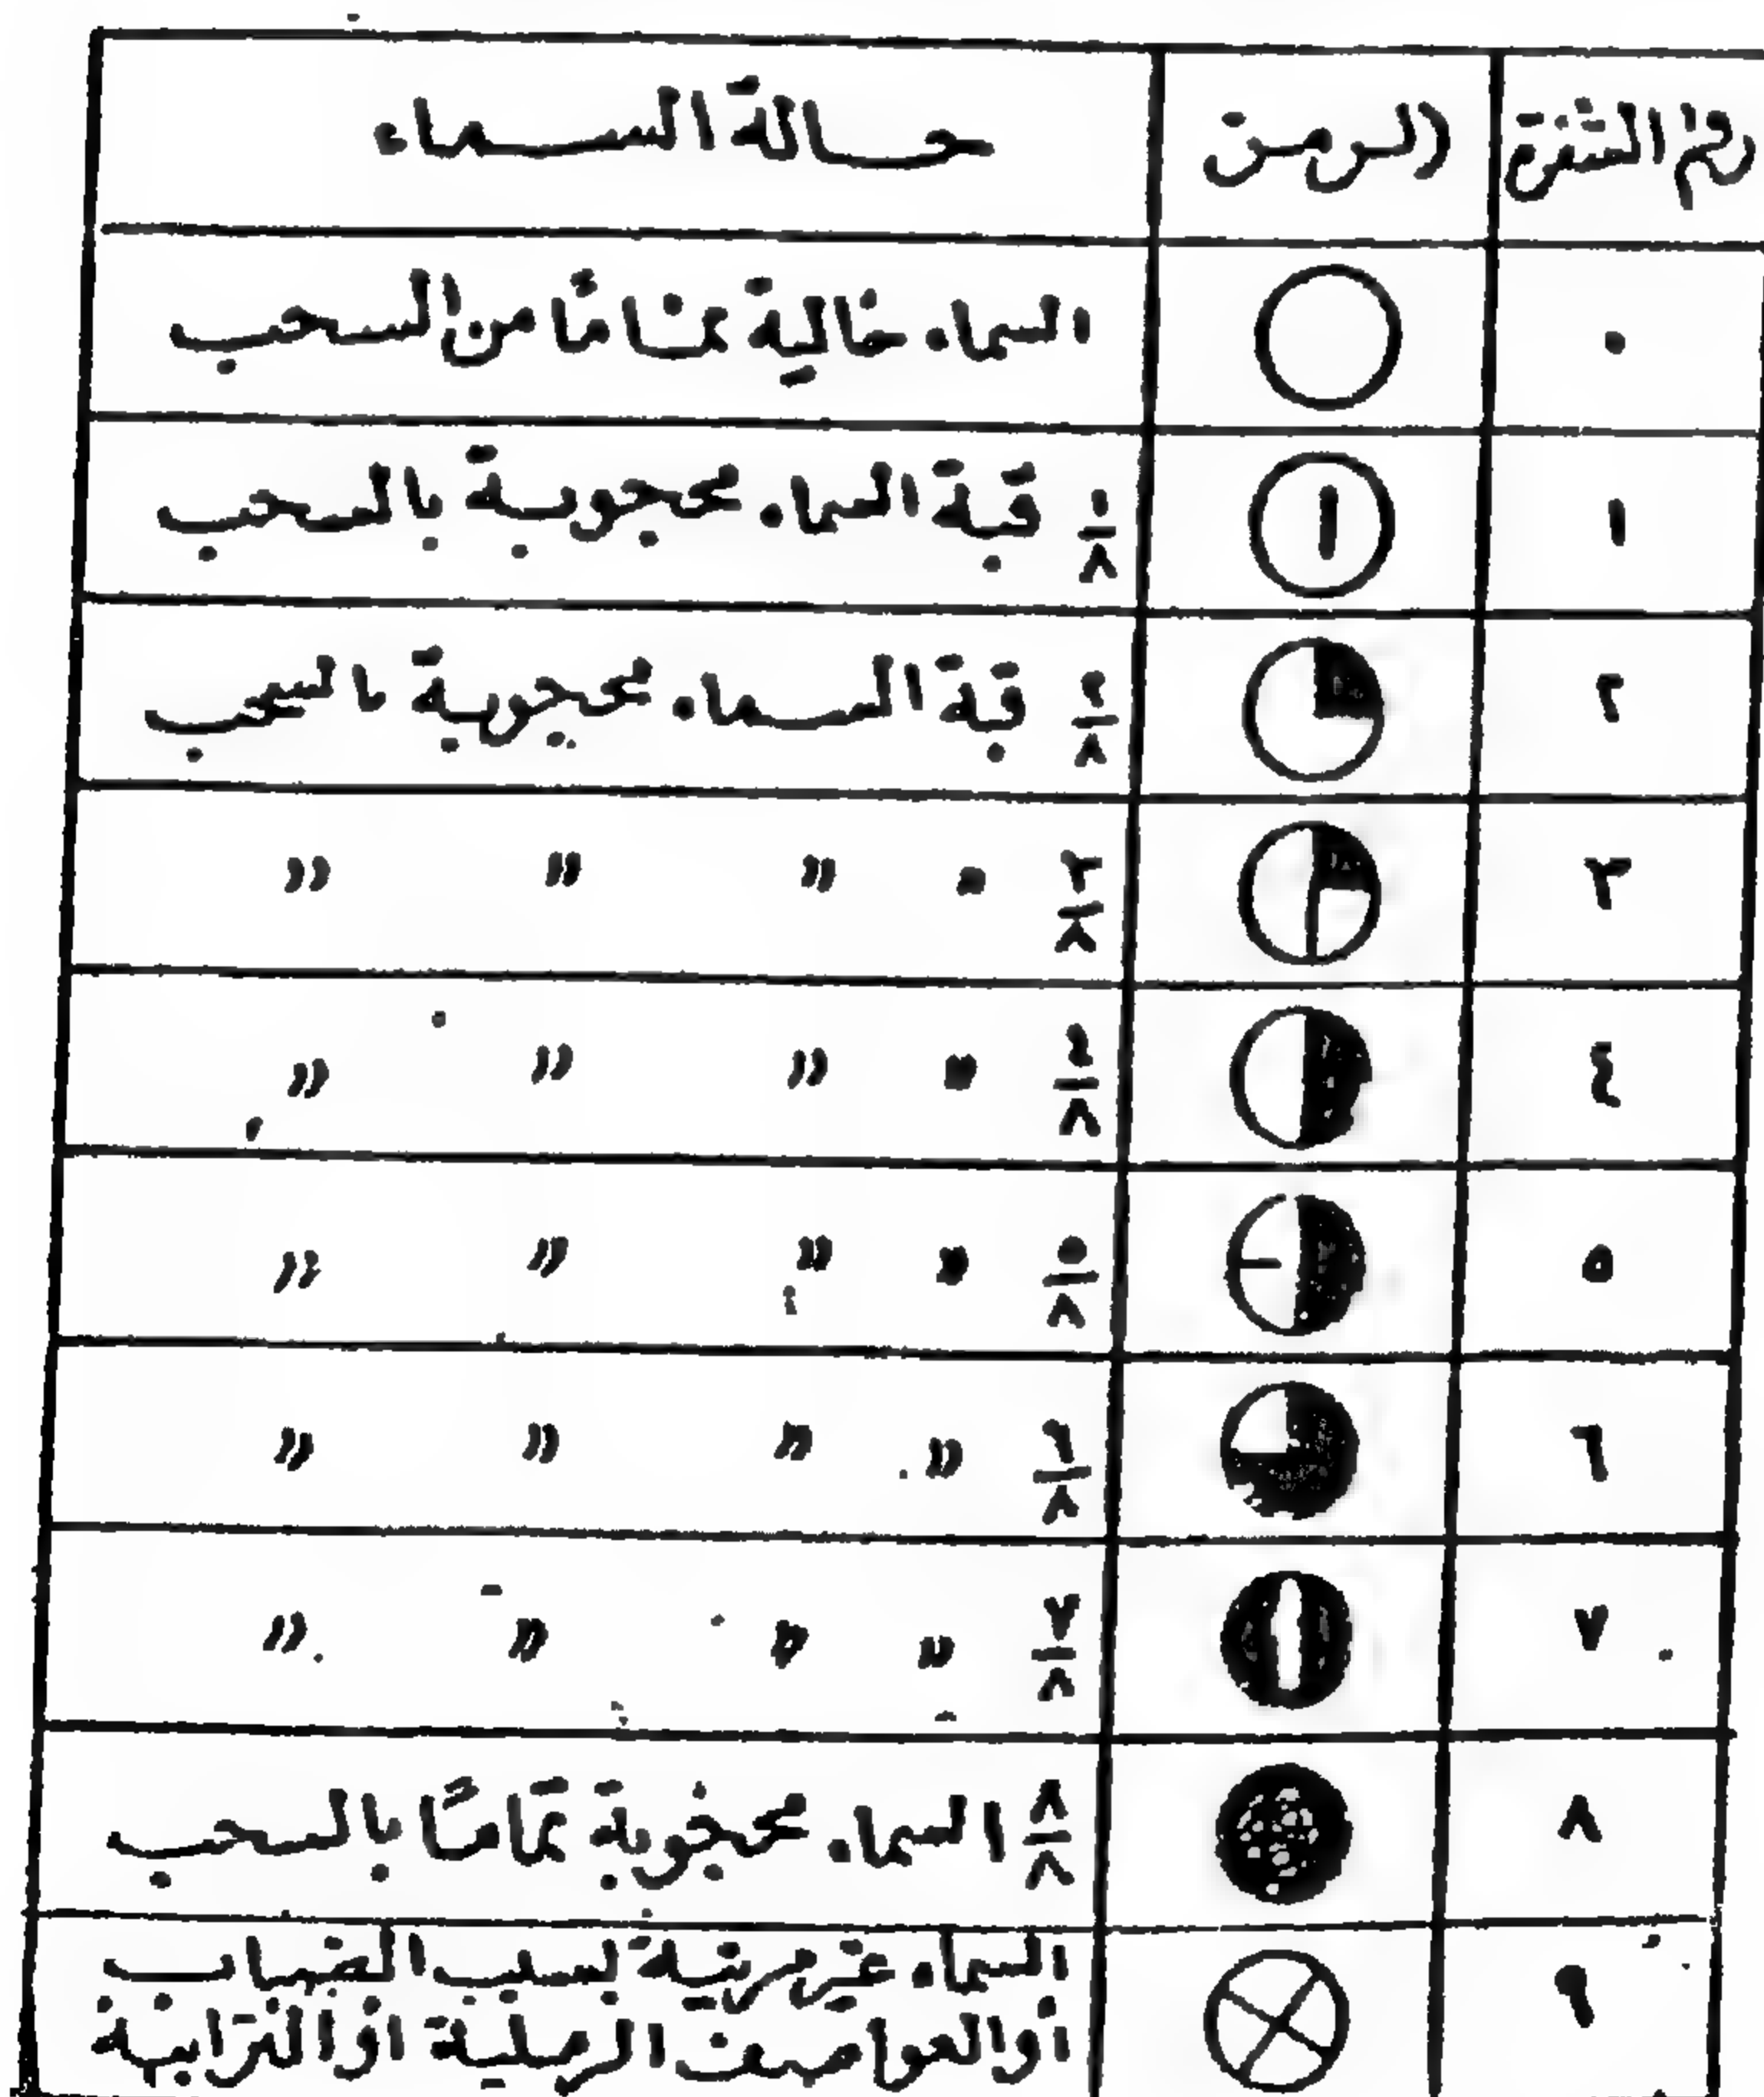 رقم الشفرة الرمز حالة السماء
٠ السماء خالية تمامًا من السحب
١ ١ ١/٨ قبة السماء محجوبة بالسحب
٢ ٢/٨ قبة السماء محجوبة بالسحب
٣ ٣/٨ " " " "
٤ ٤/٨ " " " "
٥ ٥/٨ " " " "
٦ ٦/٨ " " " "
٧ ٧/٨ " " " "
٨ ٨/٨ السماء محجوبة تمامًا بالسحب
٩ السماء غير مرئية بسبب الضباب
أو العواصف الرملية أو الترابية